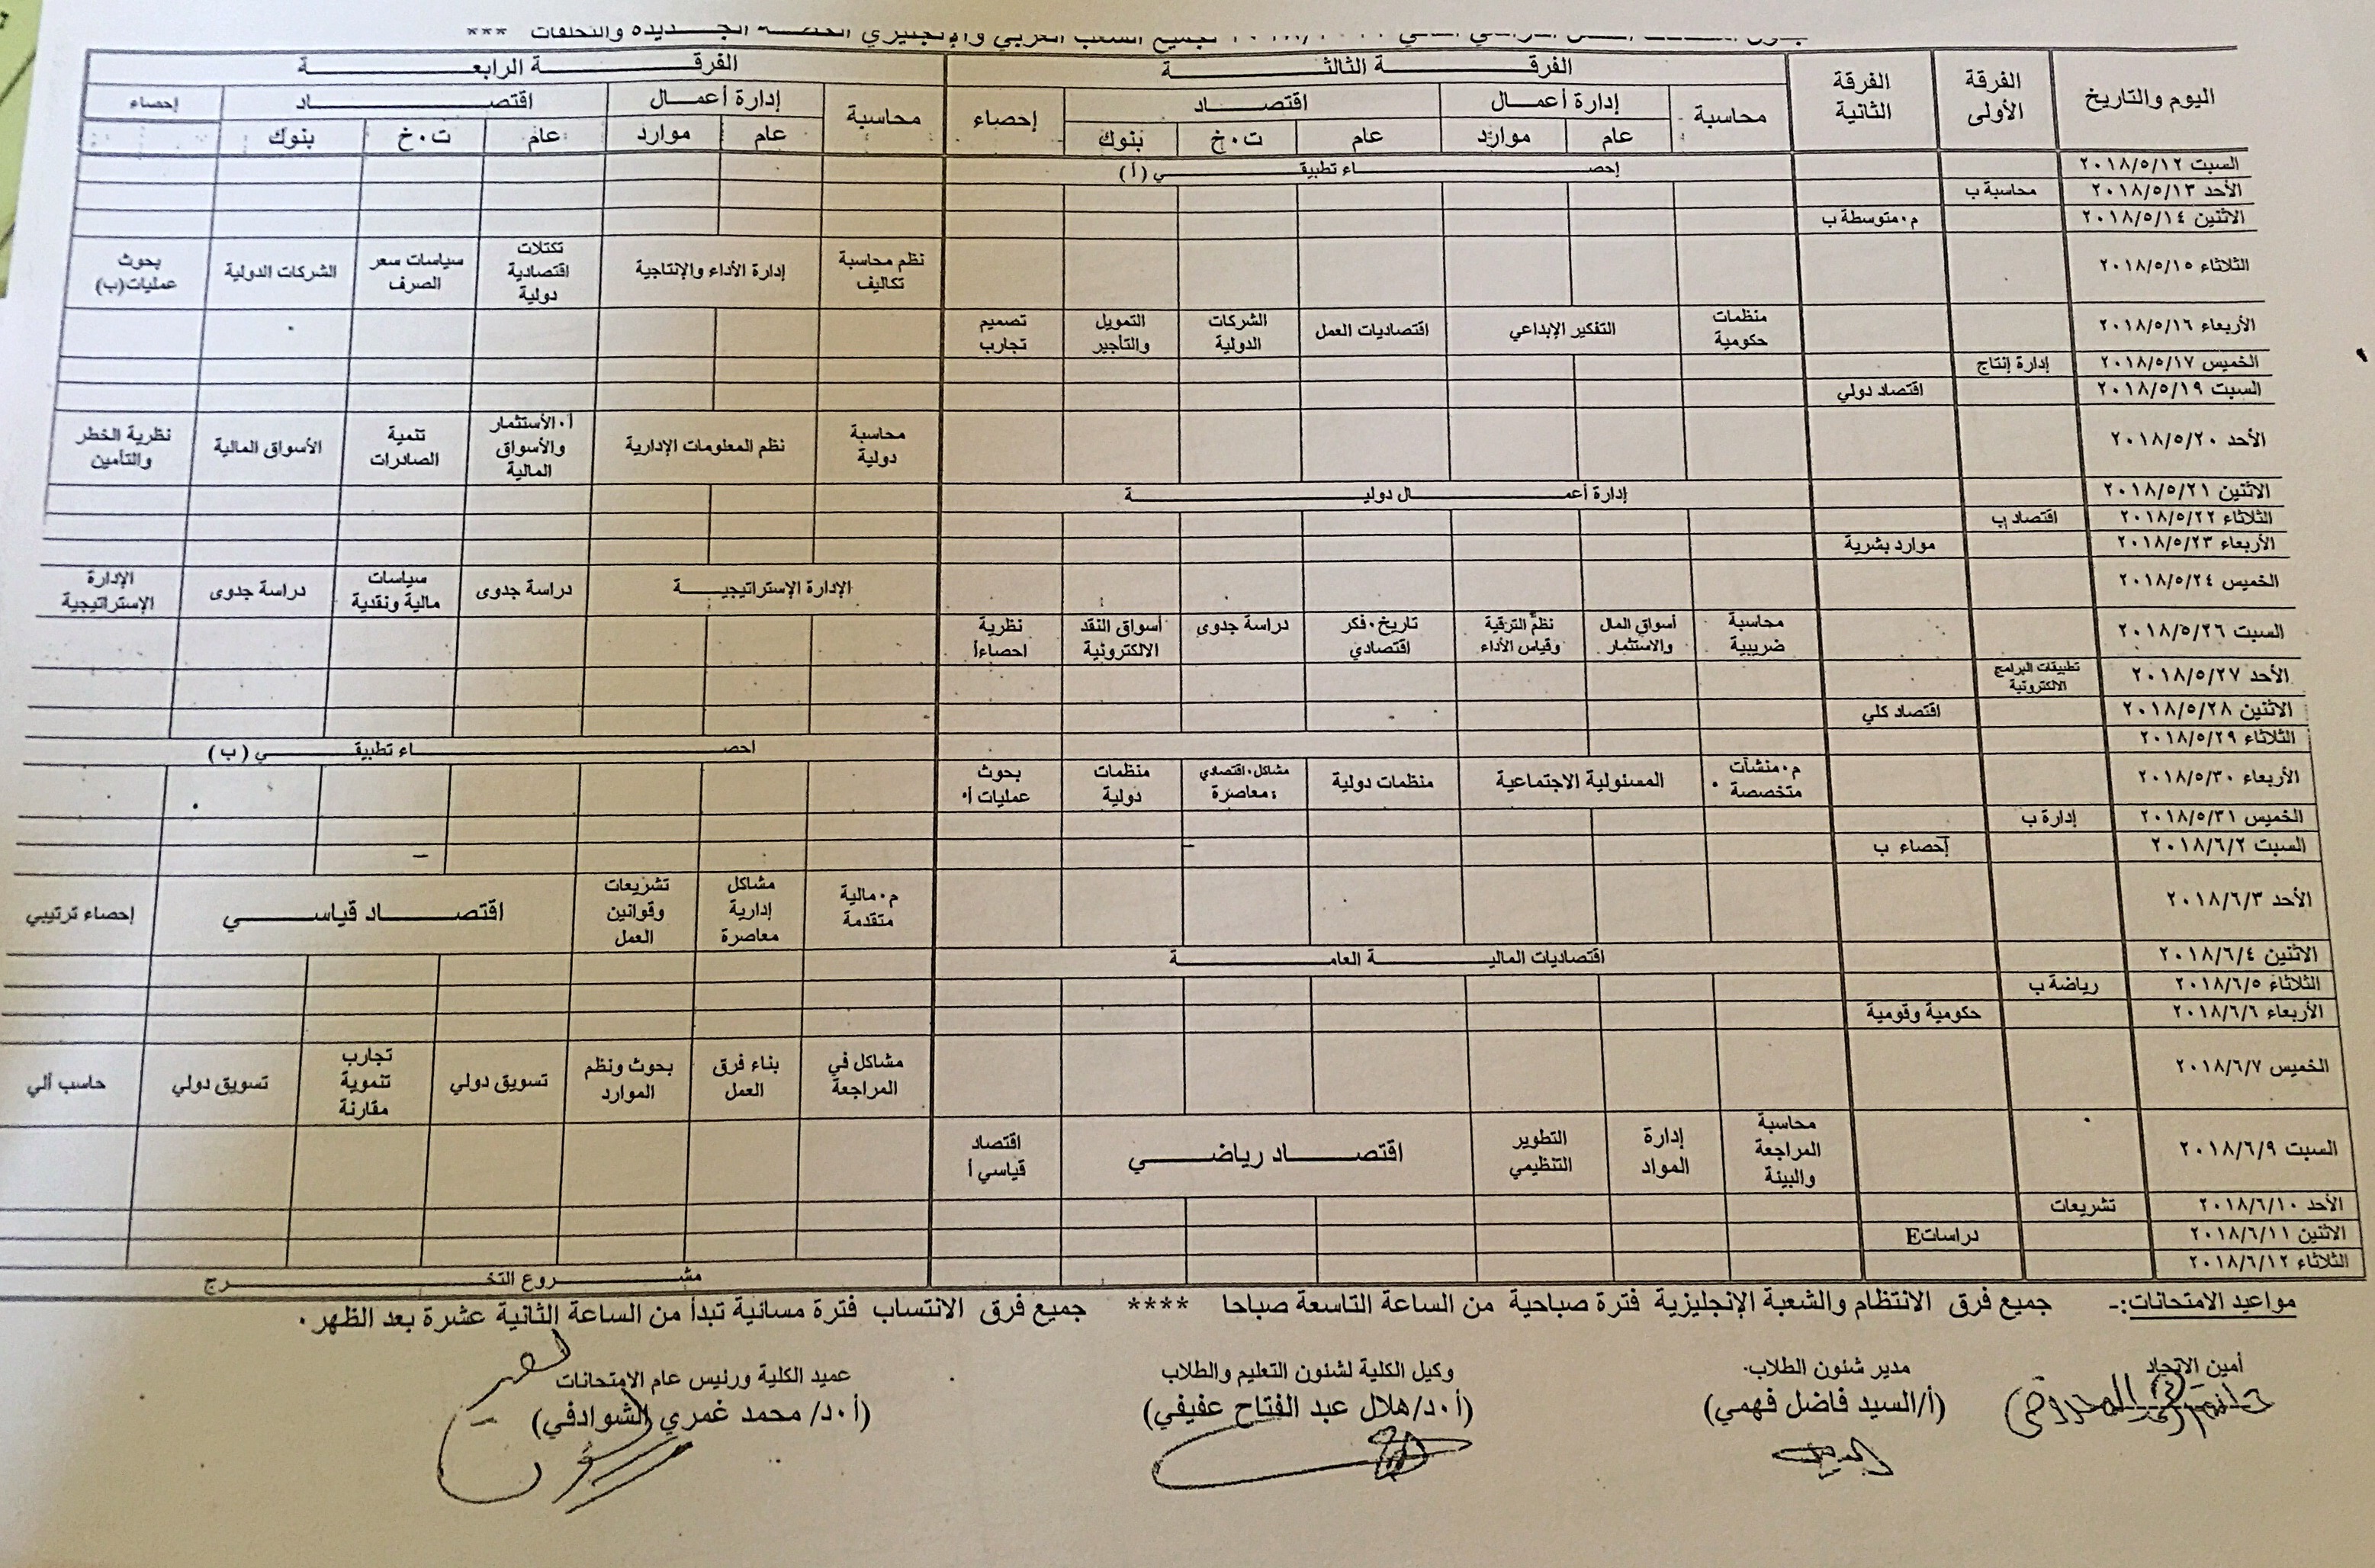 لجميع الشعب العربي والإنجليزي الجـــديده والتخلفات ***
اليوم والتاريخ الفرقة الأولى الفرقة الثانية الفرقـــة الثالثـــة الفرقـــة الرابعـــة
محاسبة إدارة أعمـــال اقتصـــاد إحصاء محاسبة إدارة أعمـــال اقتصـــاد إحصاء
عام موارد عام ت٠خ بنوك عام موارد عام ت٠خ بنوك
السبت ٢٠١٨/٥/١٢ إحصـــاء تطبيقـــي (أ)
الأحد ٢٠١٨/٥/١٣ محاسبة ب
الاثنين ٢٠١٨/٥/١٤ م٠متوسطة ب
الثلاثاء ٢٠١٨/٥/١٥ نظم محاسبة تكاليف إدارة الأداء والإنتاجية تكتلات اقتصادية دولية سياسات سعر الصرف الشركات الدولية بحوث عمليات(ب)
الأربعاء ٢٠١٨/٥/١٦ منظمات حكومية التفكير الإبداعي اقتصاديات العمل الشركات الدولية التمويل والتأجير تصميم تجارب
الخميس ٢٠١٨/٥/١٧ إدارة إنتاج
السبت ٢٠١٨/٥/١٩ اقتصاد دولي
الأحد ٢٠١٨/٥/٢٠ محاسبة دولية نظم المعلومات الإدارية أ٠الأستثمار والأسواق المالية تنمية الصادرات الأسواق المالية نظرية الخطر والتأمين
الاثنين ٢٠١٨/٥/٢١ إدارة أعمـــال دوليـــة
الثلاثاء ٢٠١٨/٥/٢٢ اقتصاد ب
الأربعاء ٢٠١٨/٥/٢٣ موارد بشرية
الخميس ٢٠١٨/٥/٢٤ الإدارة الإستراتيجيـــة دراسة جدوى سياسات مالية ونقدية دراسة جدوى الإدارة الإستراتيجية
السبت ٢٠١٨/٥/٢٦ محاسبة ضريبية أسواق المال والاستثمار نظم الترقية وقياس الأداء تاريخ٠فكر اقتصادي دراسة جدوى أسواق النقد الالكترونية نظرية احصاءأ
الأحد ٢٠١٨/٥/٢٧ تطبيقات البرامج الالكترونية
الاثنين ٢٠١٨/٥/٢٨ اقتصاد كلي
الثلاثاء ٢٠١٨/٥/٢٩ احصـــاء تطبيقـــي (ب)
الأربعاء ٢٠١٨/٥/٣٠ م٠منشآت متخصصة المسئولية الاجتماعية منظمات دولية مشاكل٠اقتصادي معاصرة منظمات دولية بحوث عمليات أ
الخميس ٢٠١٨/٥/٣١ إدارة ب
السبت ٢٠١٨/٦/٢ إحصاء ب
الأحد ٢٠١٨/٦/٣ م٠مالية متقدمة مشاكل إدارية معاصرة تشريعات وقوانين العمل اقتصـــاد قياســـي إحصاء ترتيبي
الاثنين ٢٠١٨/٦/٤ اقتصاديات الماليـــة العامـــة
الثلاثاء ٢٠١٨/٦/٥ رياضة ب
الأربعاء ٢٠١٨/٦/٦ حكومية وقومية
الخميس ٢٠١٨/٦/٧ مشاكل في المراجعة بناء فرق العمل بحوث ونظم الموارد تسويق دولي تجارب تنموية مقارنة تسويق دولي حاسب ألي
السبت ٢٠١٨/٦/٩ محاسبة المراجعة والبيئة إدارة المواد التطوير التنظيمي اقتصـــاد رياضـــي اقتصاد قياسي أ
الأحد ٢٠١٨/٦/١٠ تشريعات
الاثنين ٢٠١٨/٦/١١ دراساتE
الثلاثاء ٢٠١٨/٦/١٢ مشـــروع التخـــرج
مواعيد الامتحانات:- جميع فرق الانتظام والشعبة الإنجليزية فترة صباحية من الساعة التاسعة صباحا **** جميع فرق الانتساب فترة مسائية تبدأ من الساعة الثانية عشرة بعد الظهر٠
أمين الاتحاد مدير شئون الطلاب٠ وكيل الكلية لشئون التعليم والطلاب عميد الكلية ورئيس عام الامتحانات
(أ/السيد فاضل فهمي) (أ٠د/هلال عبد الفتاح عفيفي) (أ٠د/ محمد غمري الشوادفي)